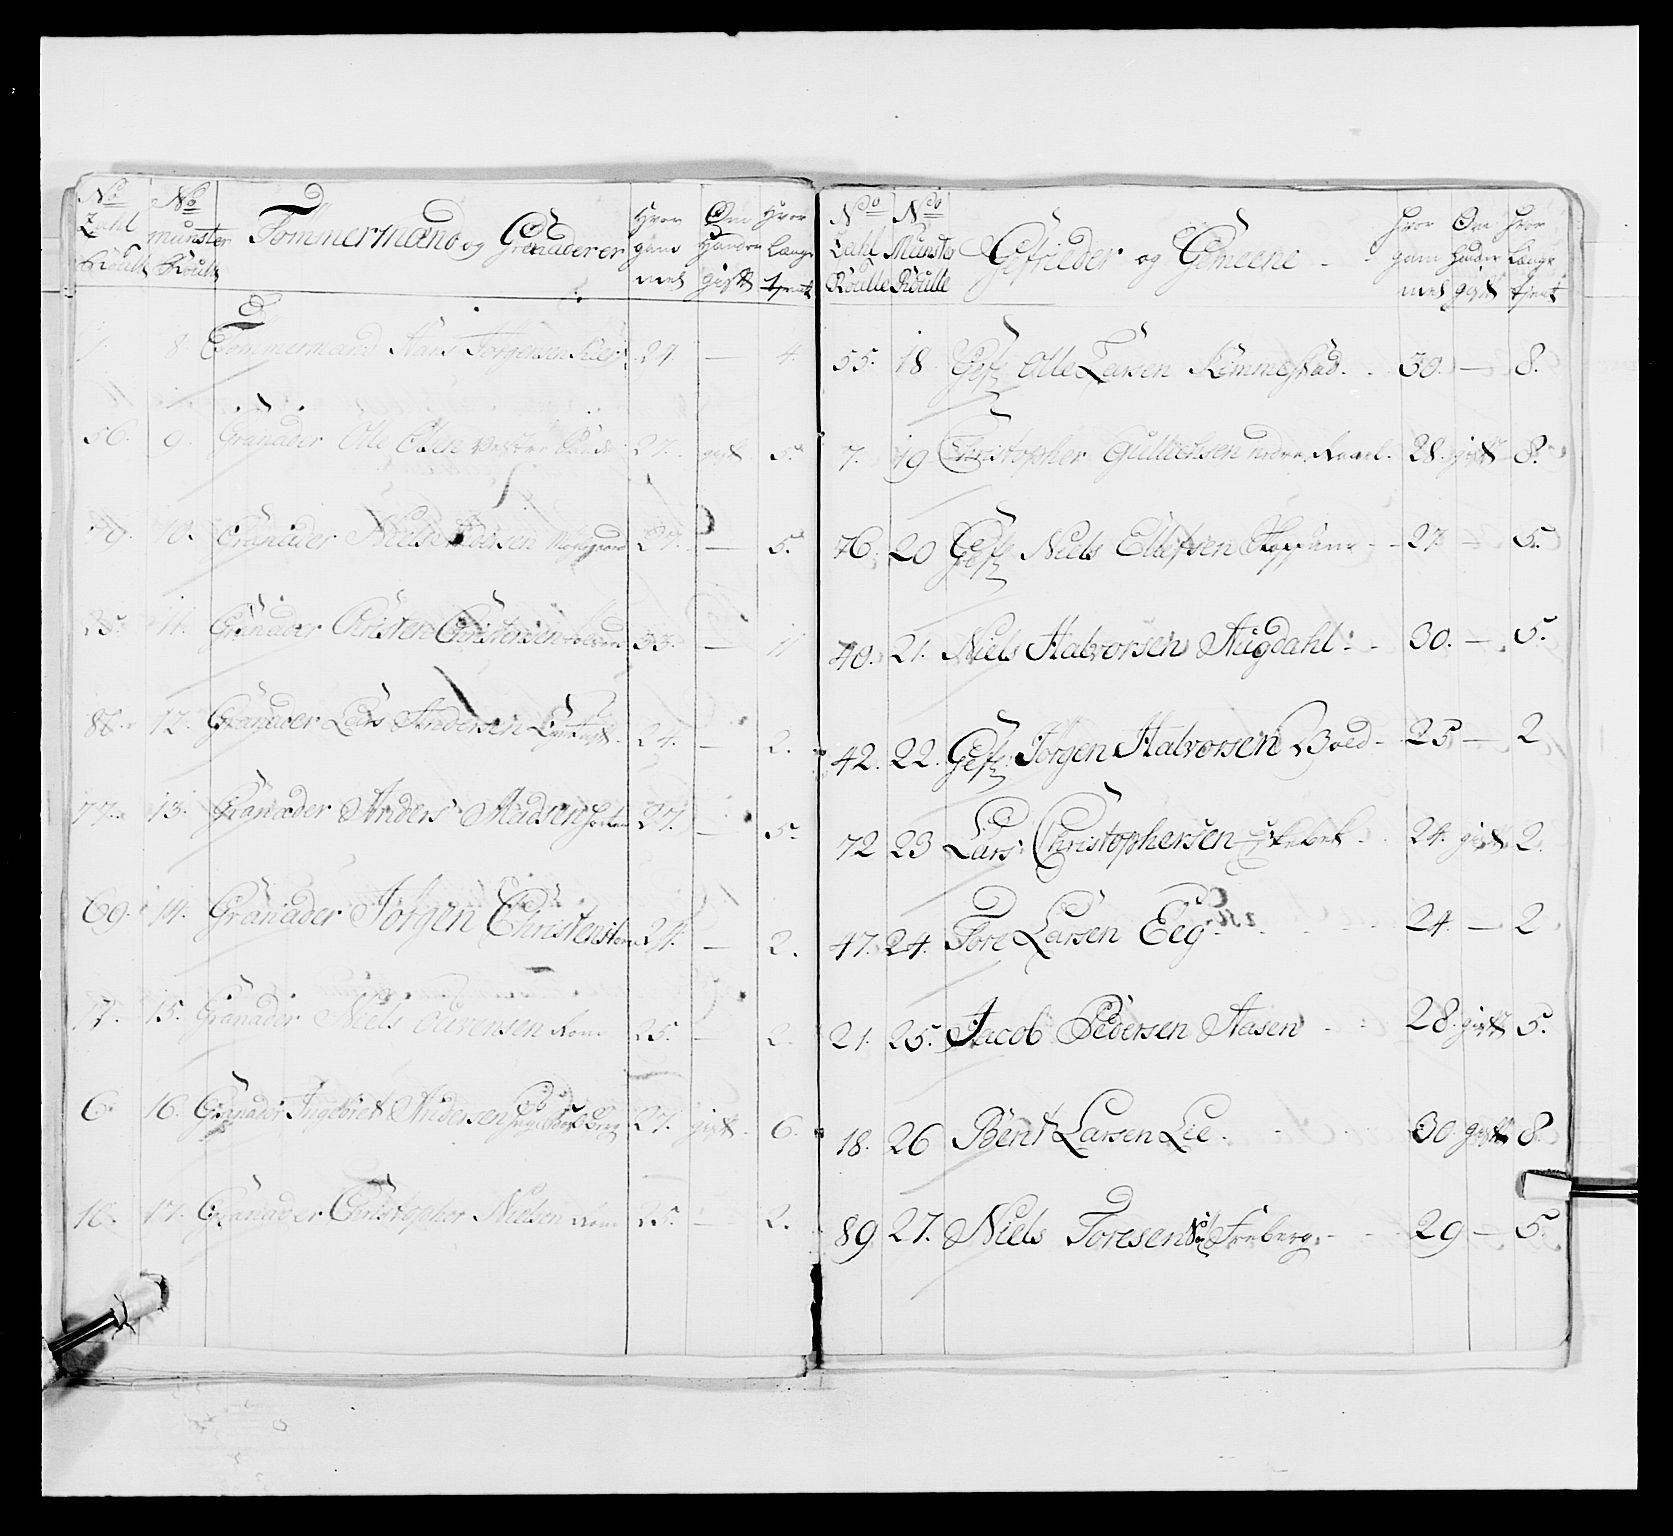 No Zahl Roulle
No Munster Roulle
Tømmermænd og Granaderer
Hvor gam mel
Om Handr gift
Hvor længe tjent
1. 8. Tømmermand Hans Jørgensen 27. — 4.
56. 9. Granader Olle Olsen Vestre 27. gift 5.
10. Granader Niels Pedersen 27. — 5.
25. 11. Granader Christen Christensen 33. — 11
12. Granader Lars Andersen 24. — 2.
77. 13. Granader Anders Madsen 27. — 5.
69. 14. Granader Jørgen Christensen 24. — 2.
17. 15. Granader Niels Larensen 25. — 2.
6. 16. Granader Ingebret Andersen 27. gift 6.
16. 17. Granader Christopher Nielsen 25. — 2.
No Zahl Roulle
No Munster Roulle
Gefrieder og Gemeene
Hvor gam mel
Om Hander gift
Hvor længe tjent
55. 18 Gef. Olle Larsen Kimmestad. 30. — 8.
7. 19 Christopher Gulbrhsen nedre 28. gift 8.
76. 20 Gef. Niels Ellefsen 27. — 5.
40. 21. Niels Halvorsen Augdahl 30. — 5.
42. 22. Gef. Jørgen Halvorsen Boed 25 — 2
72 23 Lars Christophersen 24. gift 2.
47. 24. Tore Larsen Eeg 24. — 2
21. 25. Jacob Pedersen Aasen 28. gift 5.
18. 26 Bent Larsen Lie 30. gift 8.
89 27. Niels Toresen Freberg. 29 — 5.